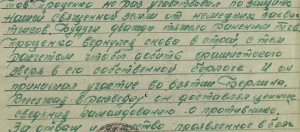 тов. Троценко не раз участвовал по защите
нашей священной земли от немецких захва
тчиков. Будучи дважды тяжело раненым тов.
Троценко вернулся снова в строй с тем
расчетом чтобы добить фашистского
зверя в его собственной берлоге. И он
принимал участие во взятии Берлина.
в разведку он доставлял ценные
сведения командованию о противнике.
За отвагу и мужество проявленное в боях